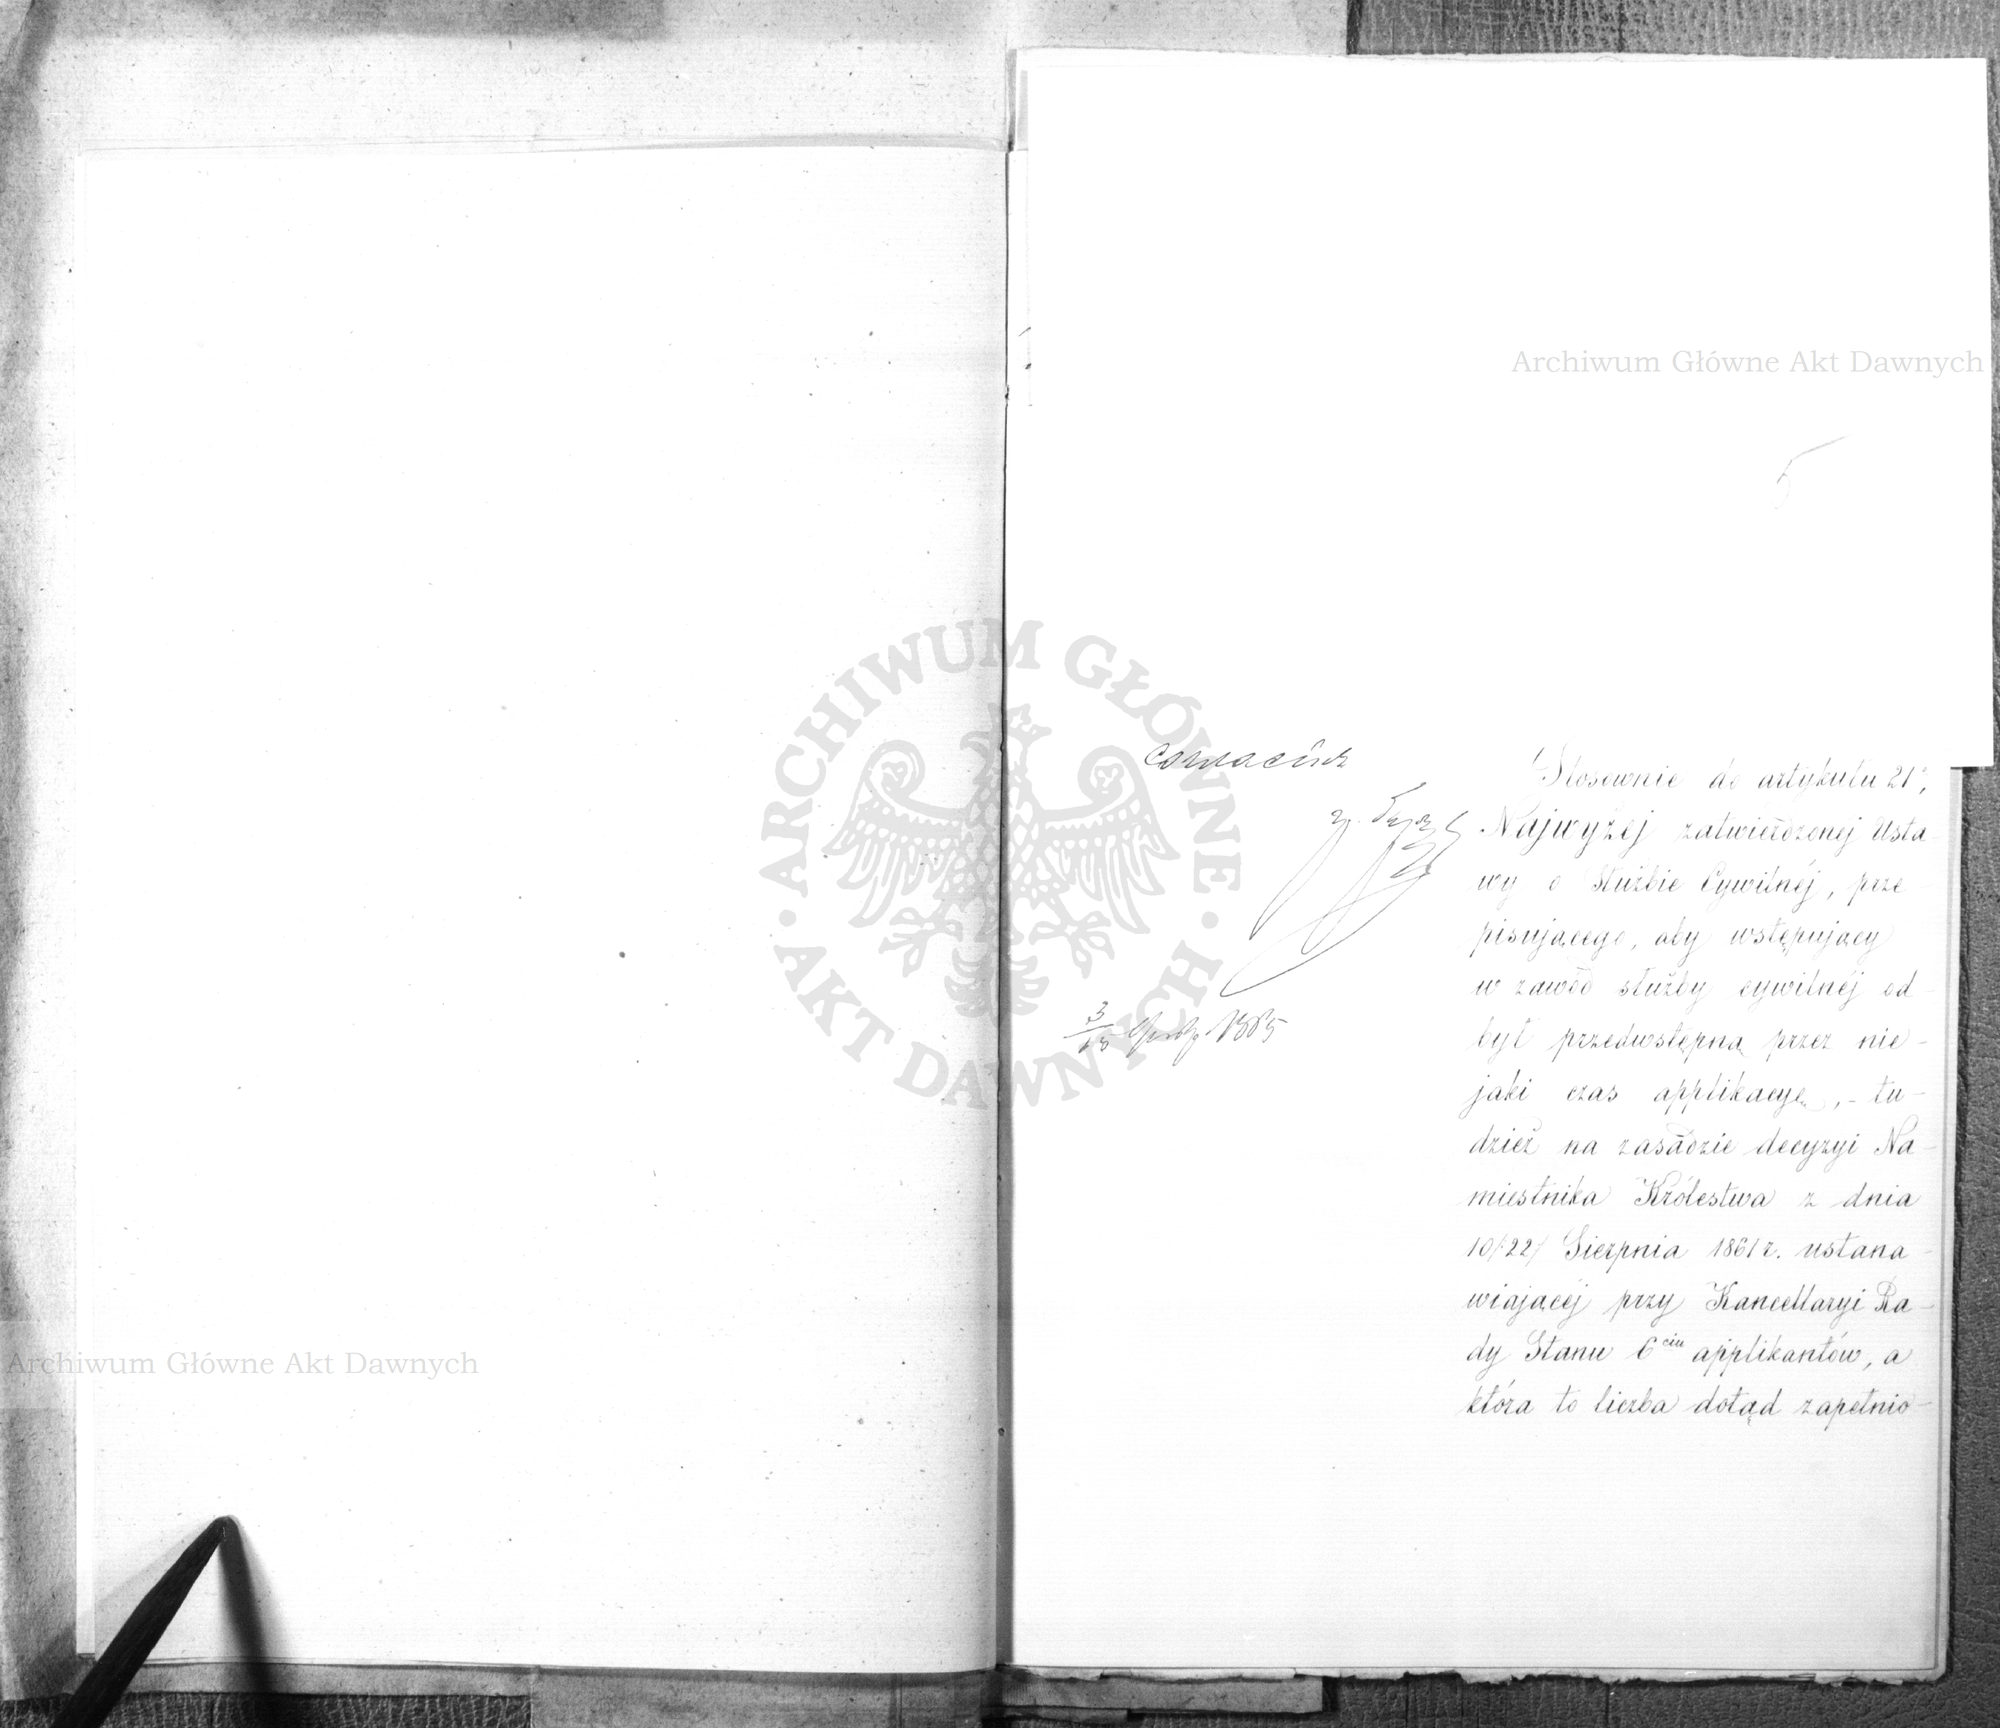 Archiwum Główne Akt Dawnych
5
ARCHIWUM GŁÓWNE
AKT DAWNYCH
согласенъ
3/15 1865
Stosownie do artykułu 21°,
Najwyżej zatwierdzonej Usta-
wy o Służbie Cywilnéj, prze-
pisującego, aby wstępujący
w zawód służby cywilnéj od-
był przedwstępną przez nie-
jaki czas applikacyę, - tu-
dzież na zasadzie decyzyi Na-
miestnika Królestwa z dnia
10/22/ Sierpnia 1861 r. ustana-
wiającéj przy Kancellaryi Ra-
dy Stanu 6ciu applikantów, a
która to liczba dotąd zapełnio-
Archiwum Główne Akt Dawnych